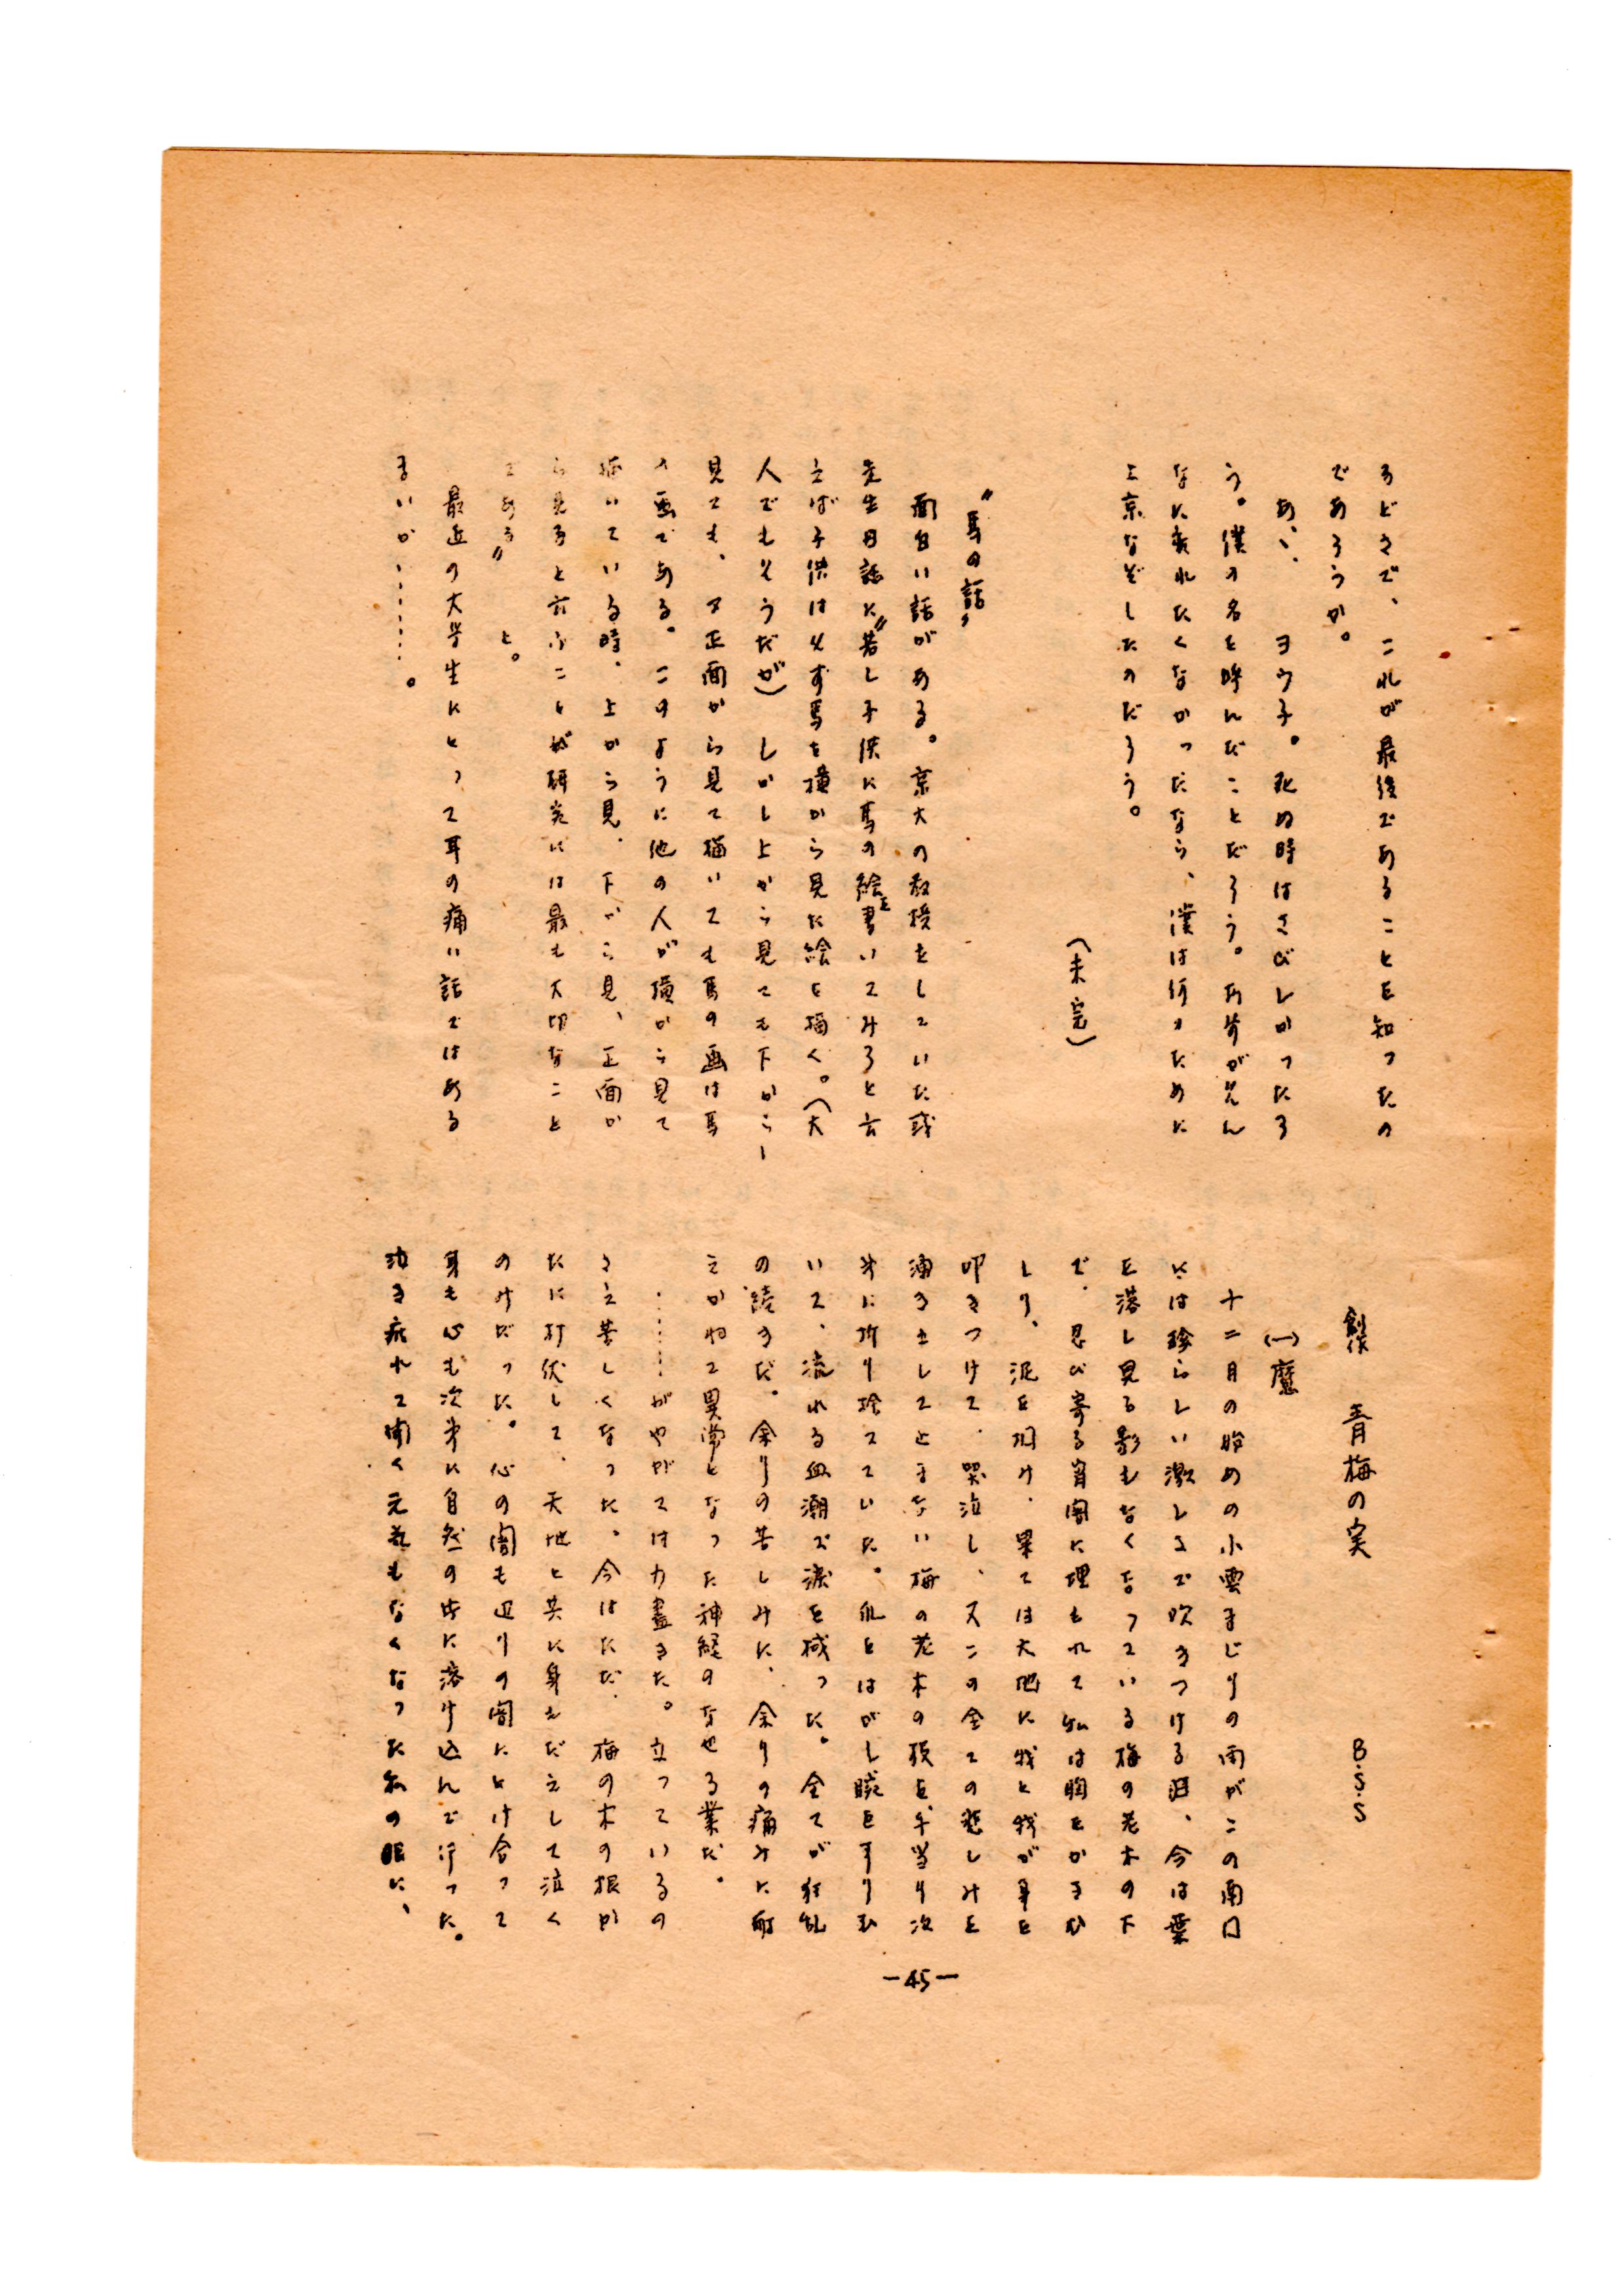 ろどきで、これが最後であることを知ったの
であろうか。
あゝ、ヨウ子。死ぬ時はさびしかったろ
う。僕の名を呼んだことだろう。お前がそん
なに哀れたくなかったなら、僕は何のために
上京なぞしたのだろう。
(未完)
〝馬の話〟
面白い話がある。京大の教授をしていた或
先生曰話に〝若し子供に馬の絵を書いてみろと云
えば子供は必ず馬を横から見た絵を描く。(大
人でもそうだが)しかし上から見ても下からー
見ても、又正面から見て描いても馬の画は馬
の画である。このように他の人が横から見て
描いている時、上から見、下から見、正面か
ら見ると云ふことが研究には最も大切なこと
である〟と。
最近の大学生にとって耳の痛い話ではある
まいか……。
創作 青梅の実 B.S.S
(一)魔
十二月の始めの小雲まじりの雨がこの南国
には珍らしい激しさで吹きつける廻、今は葉
を落し見る影もなくなっている梅の老木の下
で、忍び寄る宵闇に埋もれて私は胸をかきむ
しり、泥を掴け、果ては大地に我と我が身を
叩きつけて、哭泣し、又この全ての悲しみを
湧きましてとまない梅の老木の頭を手当り次
第に折り捨てていた。爪をはがし腕をすりむ
いて、流れる血潮で涙を拭った。全てが狂乱
の続きだ。余りの苦しみに、余りの痛みに耐
えかねて異常となった神経のなせる業だ。
……がやがては力盡きた。立っているの
さえ苦しくなった。今はただ、梅の木の根か
たに打伏して、天地と共に身もだえして泣く
のみだった。心の闇も辺りの闇にとけ合って
身も心も次第に自然の中に溶け込んで行った。
泣き疲れて動く元気もなくなった私の眼に、
—45—